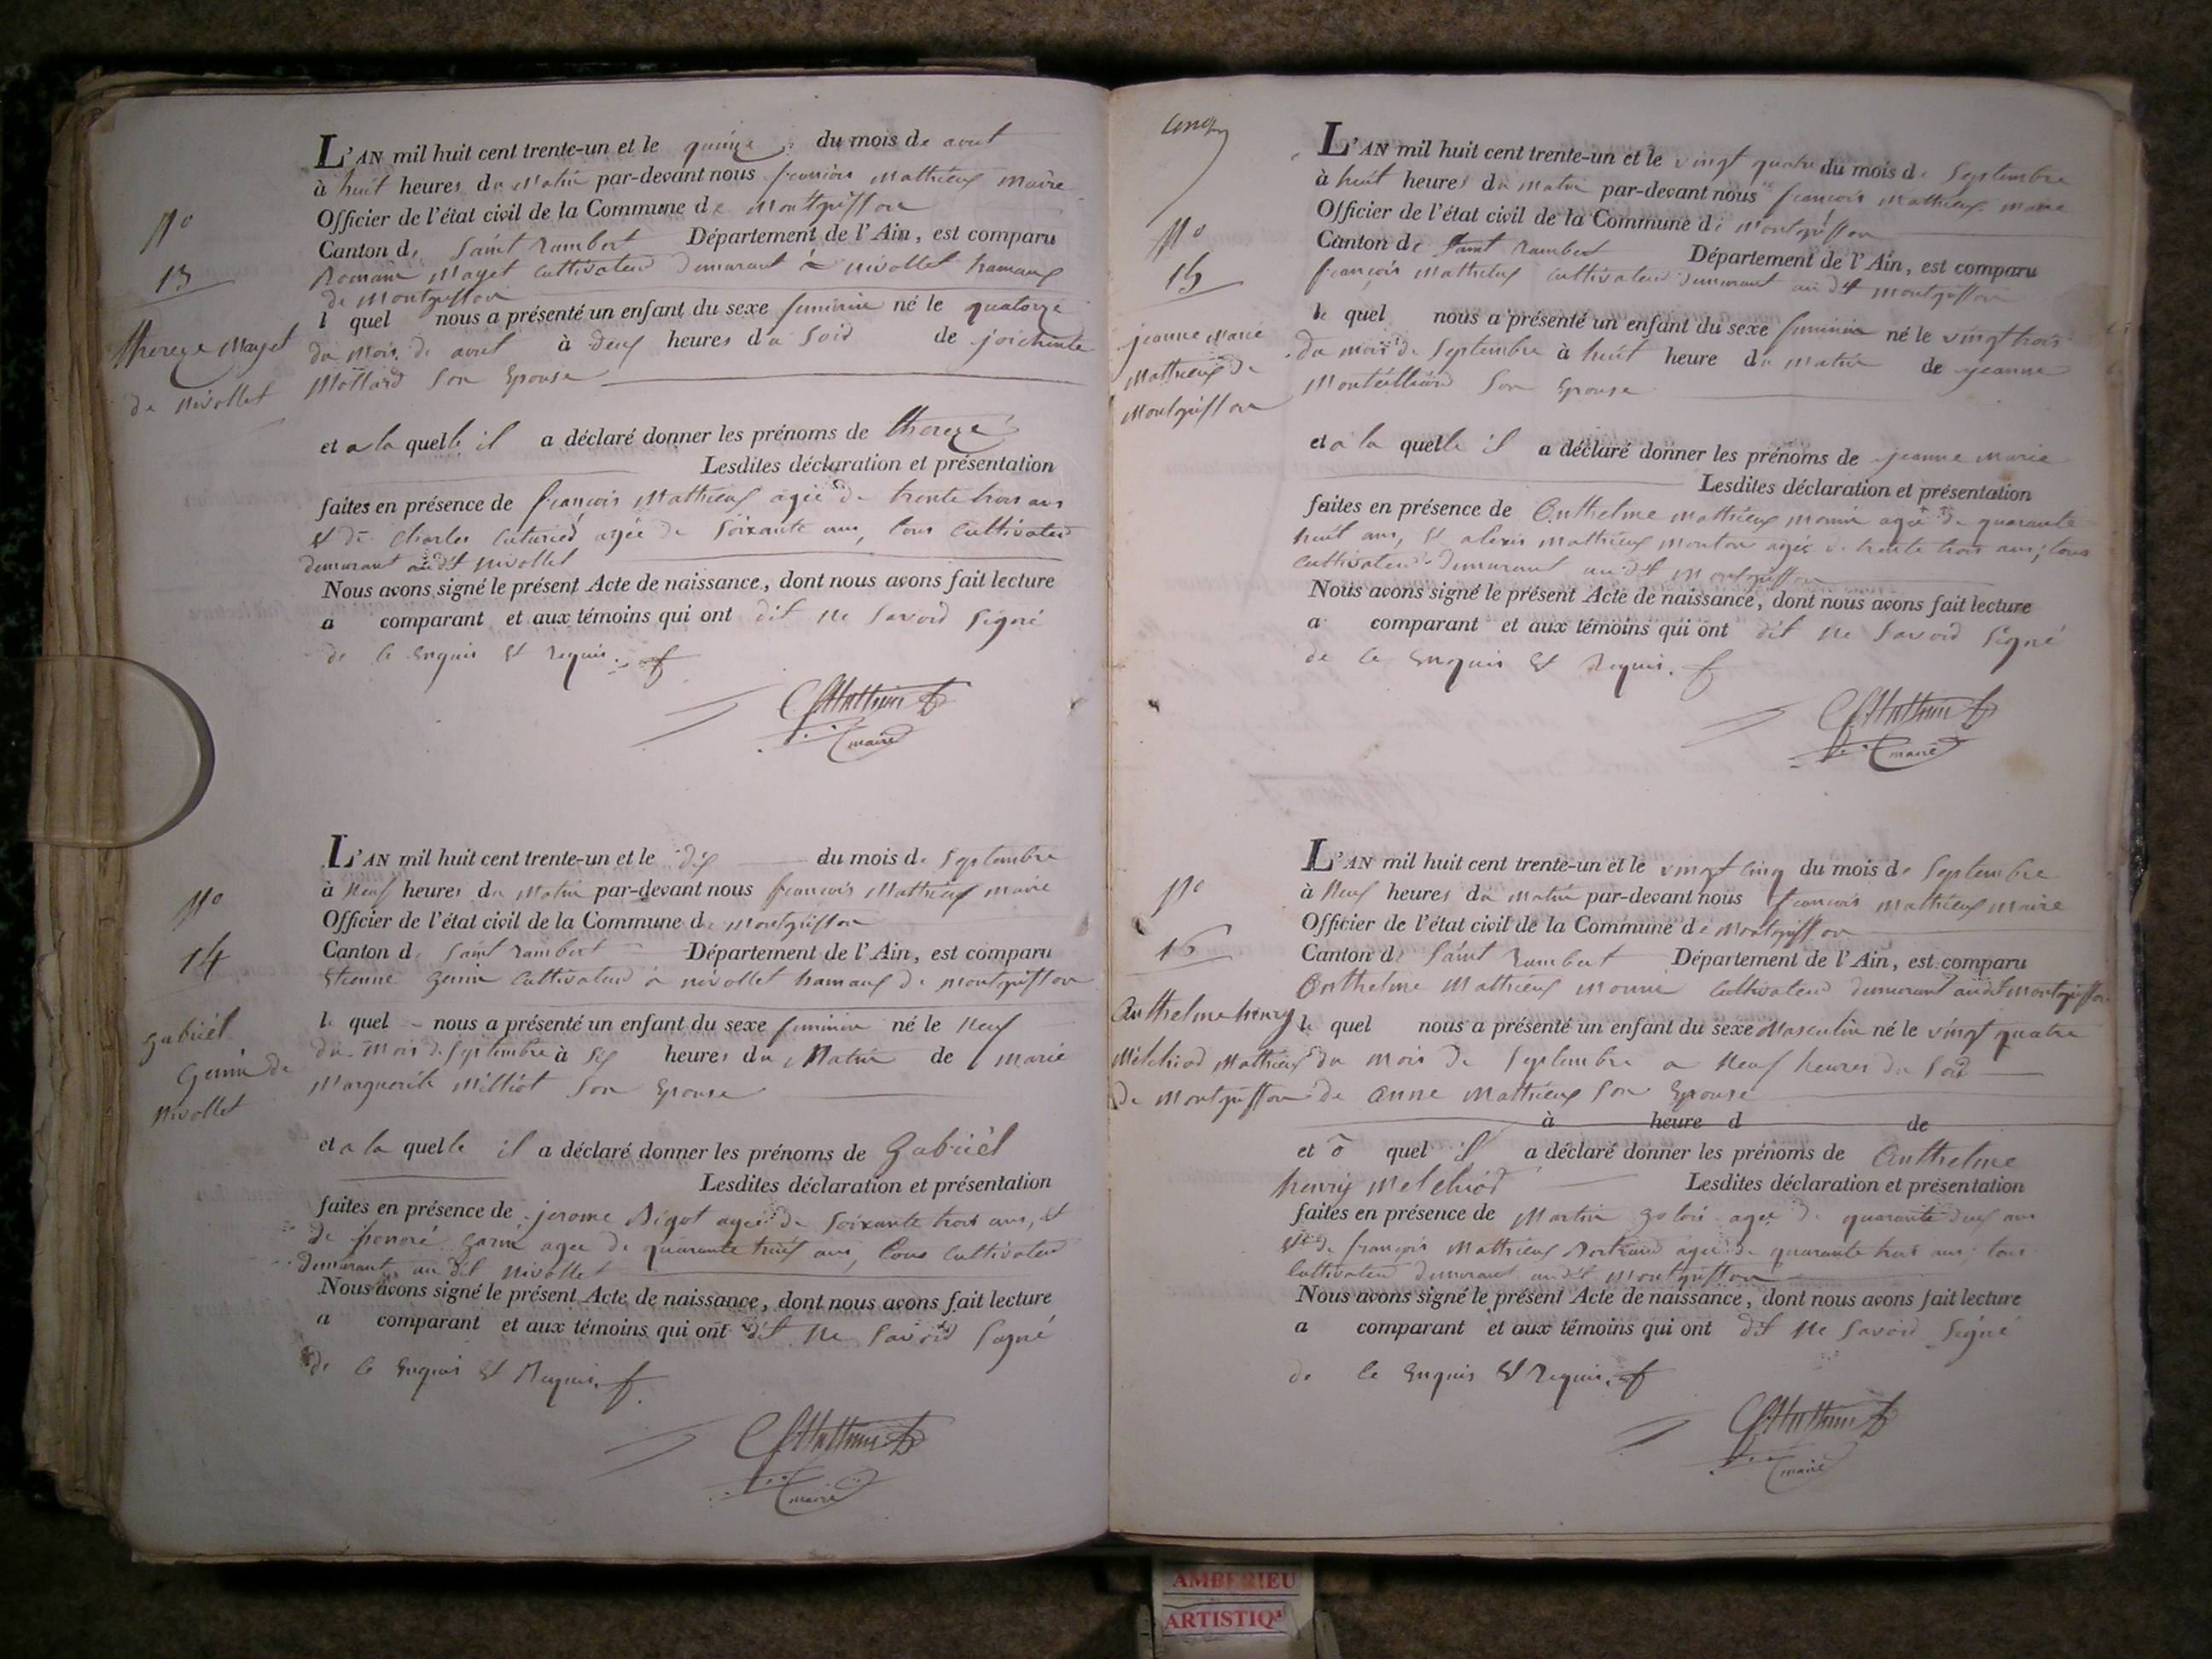 L'AN mil huit cent trente-un et le quinze du mois de avut
à huit heures du Matin par-devant nous françois Mathieux maire
Officier de l'état civil de la Commune de Montgriffon
Canton de Saint rambert Département de l'Ain, est comparu
Romain Mayet cultivateur demurant à nivollet hamaux
de Montgriffon
lequel nous a présenté un enfant du sexe feminin né le quatorze
du mois de avut à deux heures du Soir de
Mottard Son Epouse
et a la quelle il a déclaré donner les prénoms de thereze
Lesdites déclaration et présentation
faites en présence de françois Mathieux agée de trente trois ans
et de charles agée de Soixante ans, tous cultivateur
demurant audit nivollet
Nous avons signé le présent Acte de naissance, dont nous avons fait lecture
a comparant et aux témoins qui ont dit ne Savoir Signé
de ce Enquis et requis.
Mathieux
maire
No
13
thereze Mayet
de nivollet
L'AN mil huit cent trente-un et le dix du mois de Septembre
à Neuf heures du Matin par-devant nous françois Mathieux maire
Officier de l'état civil de la Commune de montgriffon
Canton de Saint rambert Département de l'Ain, est comparu
Etienne genin cultivateur à nivollet hamaux de montgriffon
le quel nous a présenté un enfant du sexe feminin né le Neuf
du mois de Septembre à Six heures du Matin de marie
Marguerite Milliot Son Epouse
et a la quelle il a déclaré donner les prénoms de Gabriel
Lesdites déclaration et présentation
faites en présence de jerome Bigot agée de Soixante trois ans, et
de honoré agée de quarante ans, tous cultivateur
demurant au dit nivollet
Nous avons signé le présent Acte de naissance, dont nous avons fait lecture
a comparant et aux témoins qui ont dit ne Savoir Signé
de ce Enquis et Requis.
Mathieux
maire
No
14
gabriel
Genin de
nivollet
cinq
L'AN mil huit cent trente-un et le vingt quatre du mois de Septembre
à huit heures du matin par-devant nous françois Mathieux maire
Officier de l'état civil de la Commune de Montgriffon
Canton de Saint rambert Département de l'Ain, est comparu
françois Mathieux cultivateur demurant au dit montgriffon
le quel nous a présenté un enfant du sexe feminin né le vingt trois
du mois de Septembre à huit heure du matin de jeanne
Son Epouse
et a la quelle il a déclaré donner les prénoms de jeanne marie
Lesdites déclaration et présentation
faites en présence de Anthelme mathieux monin agée de quarante
huit ans, et alexis Mathieux Monton agée de trente trois ans, tous
cultivateur demurant au dit montgriffon
Nous avons signé le présent Acte de naissance, dont nous avons fait lecture
a comparant et aux témoins qui ont dit ne Savoir Signé
de ce Enquis et Requis.
Mathieux
maire
No
15
jeanne marie
Mathieux de
montgriffon
L'AN mil huit cent trente-un et le vingt cinq du mois de Septembre
à Neuf heures du matin par-devant nous françois mathieux maire
Officier de l'état civil de la Commune de montgriffon
Canton de Saint rambert Département de l'Ain, est comparu
Anthelme Mathieux Monin cultivateur demurant audit montgriffon
le quel nous a présenté un enfant du sexe Masculin né le vingt quatre
du mois de Septembre a Neuf heures du Soir
de Anne Mathieux Son Epouse
à heure d de
et o quel il a déclaré donner les prénoms de Anthelme
henry Melchior Lesdites déclaration et présentation
faites en présence de Martin agée de quarante deux ans
et de françois Mathieux Bertrand agée de quarante huit ans, tous
cultivateur demurant audit montgriffon
Nous avons signé le présent Acte de naissance, dont nous avons fait lecture
a comparant et aux témoins qui ont dit ne Savoir Signé
de ce Enquis et Requis.
Mathieux
maire
No
16
Anthelme henry
Melchior Mathieux
de montgriffon
AMBERIEU
ARTISTIQ